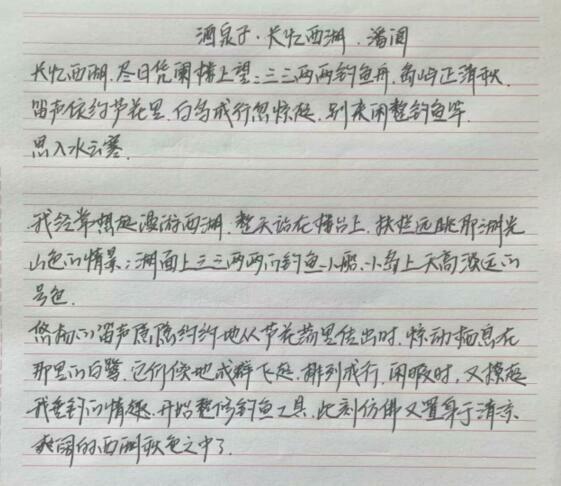 酒泉子·长忆西湖.潘阆
长忆西湖.尽日凭阑楼上望:三三两两钓鱼舟,岛屿正清秋.
笛声依约芦花里.白鸟成行忽惊起.别来闲整钓鱼竿.
思入水云寒.
我经常想起漫游西湖.整天站在楼台上.扶栏远眺那湖光
山色的情景:湖面上三三两两的钓鱼小船.小岛上天高淡远的
秋色.
悠扬的笛声隐隐约约地从芦花荡里传出时.惊动栖息在
那里的白鹭.它们倏地成群飞起.排列成行.闲暇时,又撩起
我垂钓的情趣.开始整修钓鱼工具.此刻仿佛又置身于清凉
的西湖秋色之中了.